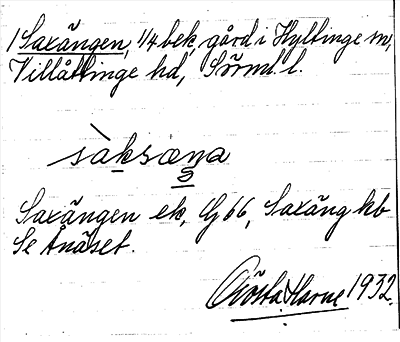 1 Saxängen, 1/4 bek, gård i Hyltinge sn,
Villåttinge hd, Sörml. l.
sàksæŋa
Saxängen ek, G 66, Saxäng kb
Se Ånäset.
Gösta Harne 1932.